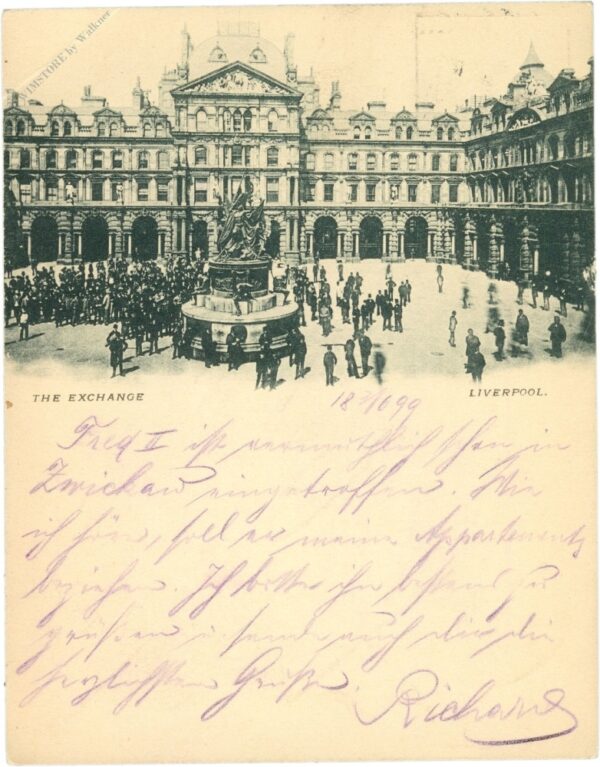 AIMSTORE by Walkner
THE EXCHANGE
LIVERPOOL.
18 2/10 99
Fred II ist vermuthlich schon in
Zwickau eingetroffen. Wie
ich höre, soll er meine Appartements
beziehen. Ich bitte ihn bestens zu
grüßen u. sende auch dir die
herzlichsten Grüße.
Richard